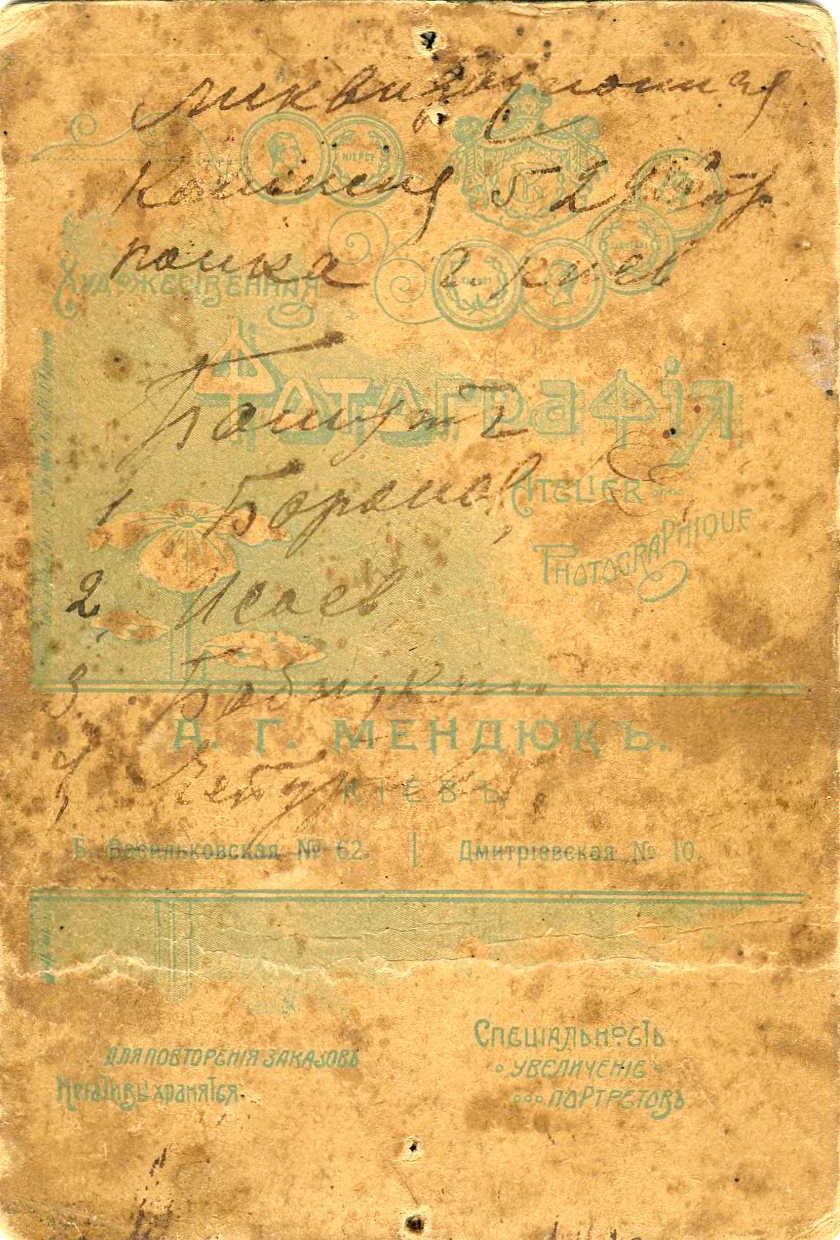 ликвидационная
комисия 52 стр
полка г киев
Художественная
Фотографія
Atelier
Photographique
1 Боранов
2 Исаев
3
А. Г. Мендюкъ.
Кіевъ
Б. Васильковская № 62. | Дмитріевская № 10.
Для повторенія заказовъ
негативы хранятся.
Спеціальность
увеличеніе
портретовъ